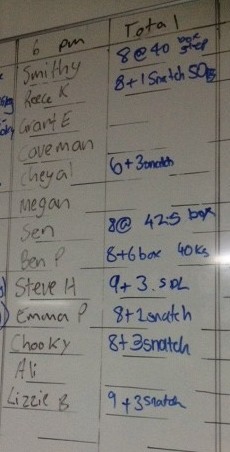 6 pm Total
Smithy 8@40 box step
Reece K 8+1 Snatch 50
Grant E
Caveman
Cheyal 6+3snatch
Megan
Sen 8@ 42.5 box
Ben P 8+6box 40Ks
Steve H 9+3. SDL
Emma P 8+2snatch
Chooky 8+3snatch
Ali
Lizzie B 9+3snatch